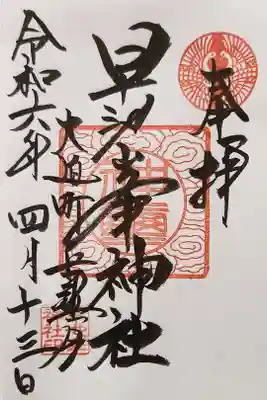 奉拝
早池峯神社
大迫町
令和六年四月十三日